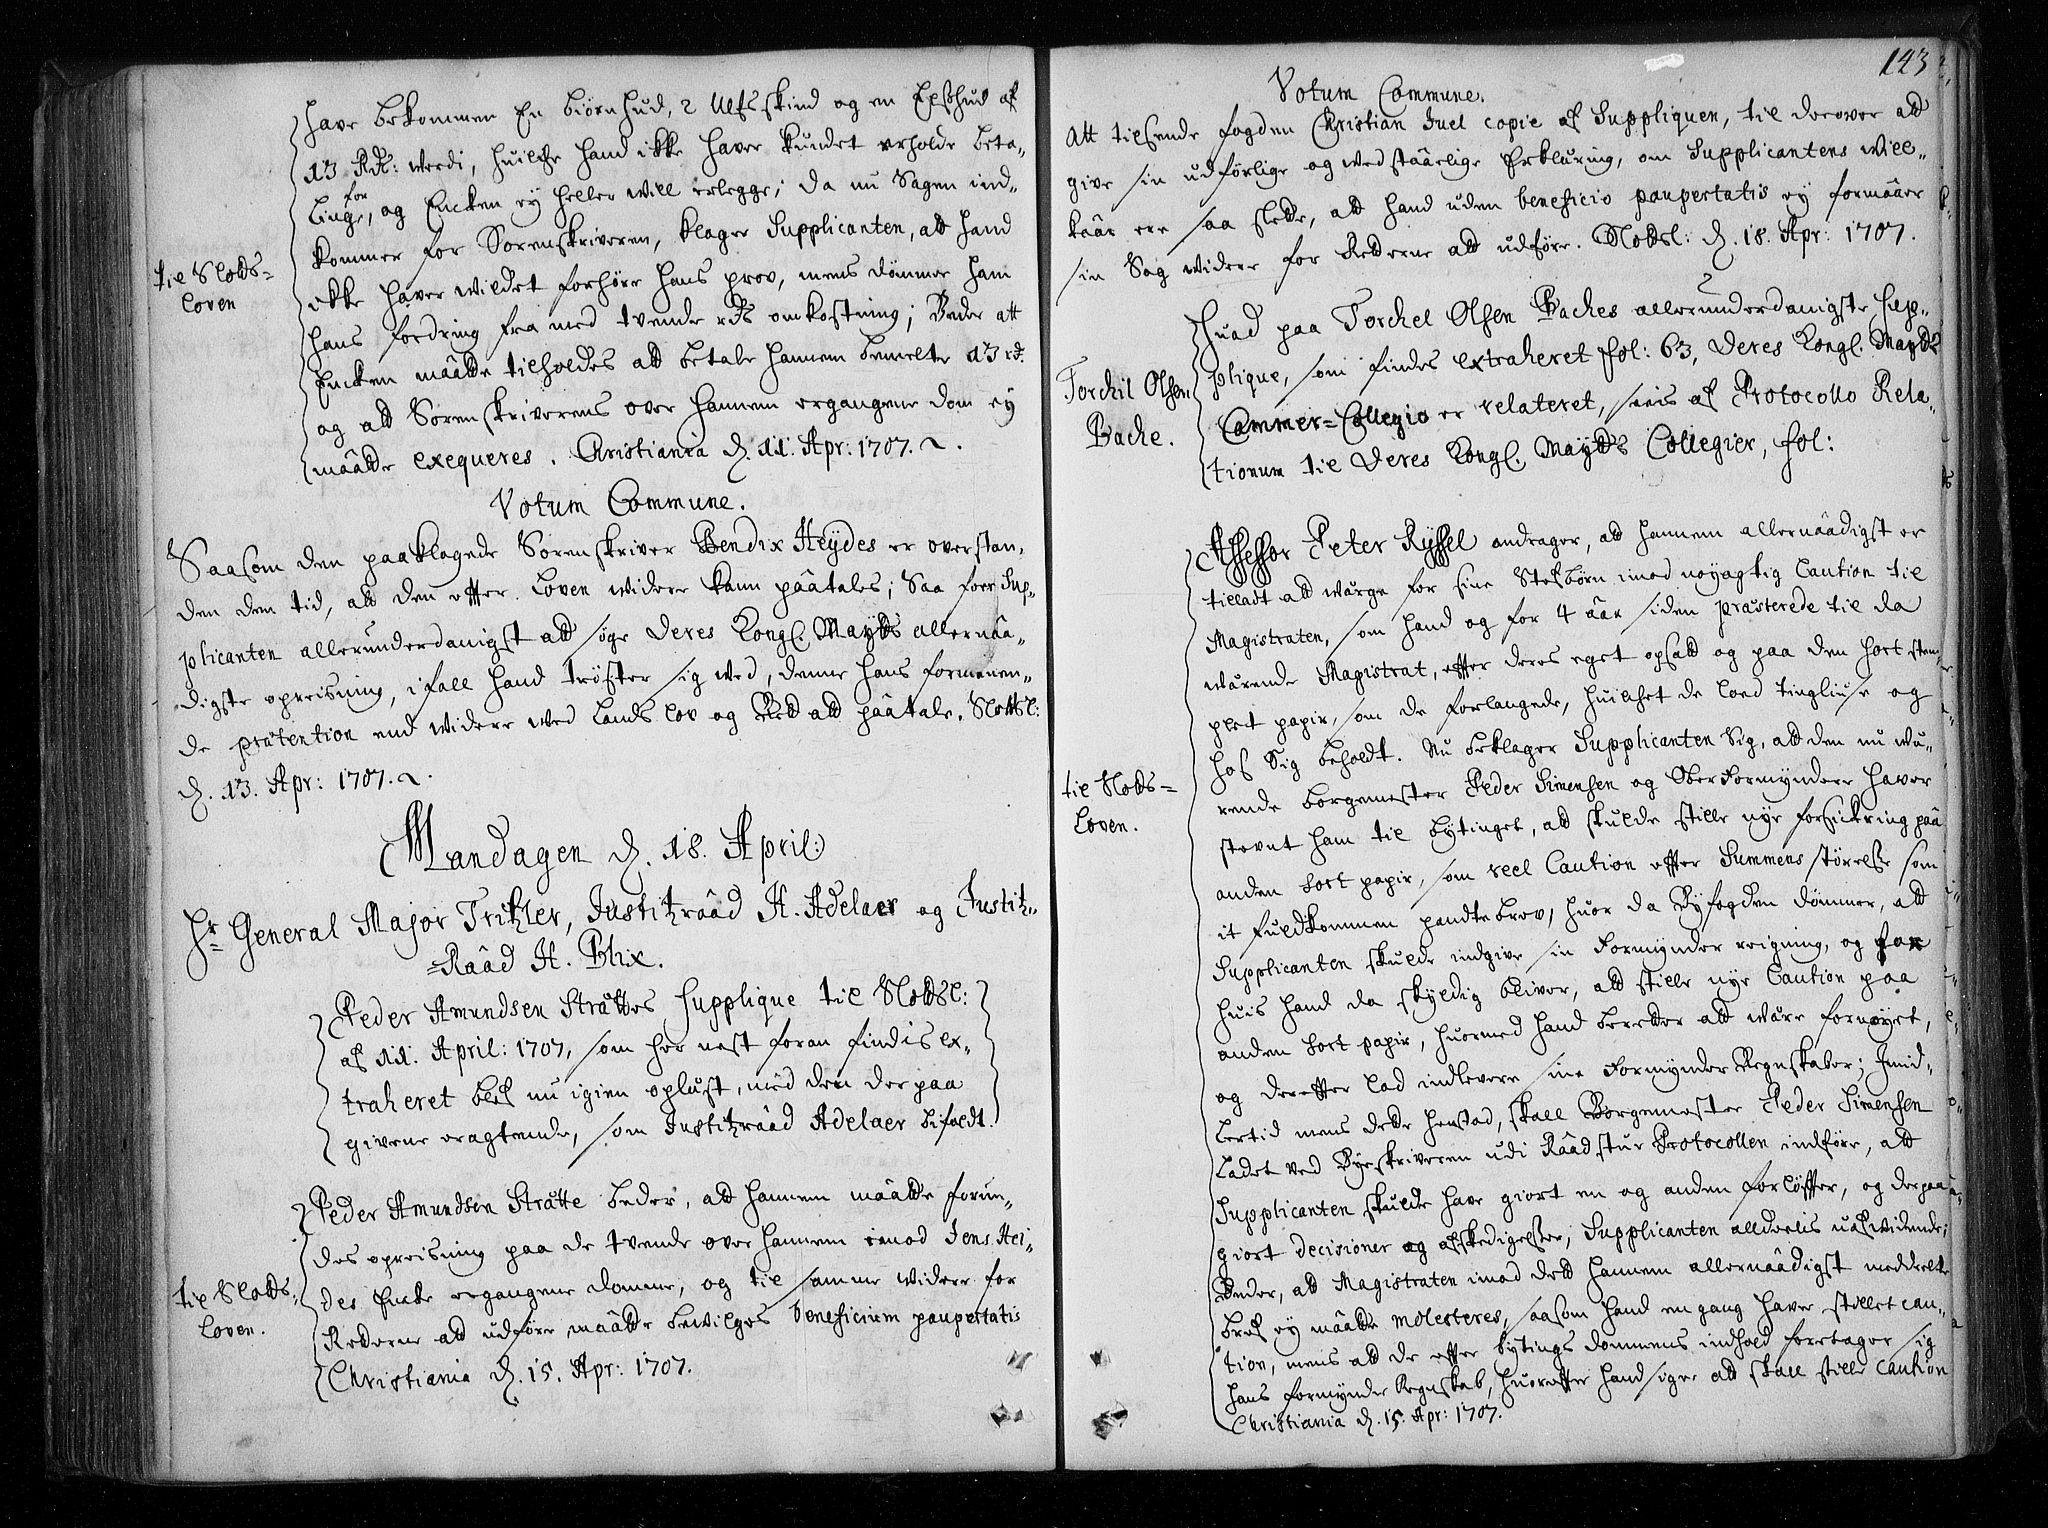 have bekommen En biørnhud, 2 Ulfsskind og en Elsshud af
13 Rdr: werdi, huilche hand ikke haver kundet erholde beta-
ling for, og Encken ey heller will erlegge; da nu Sagen ind-
kommer for Sorenskriveren, klager Supplicanten, att hand
til Slotts=
loven
ikke haver wildet forhøre hans prov, mens dømmer ham
hans fordring fra med tvende rdr omkostning; Beder att
Encken måtte tilholdes att betale hannem bemelte 13 rd.
og att Sorenskriverens over hannem ergangene dom ey
måtte exequeres. Christiania d. 11. Apr: 1707.
Votum Commune.
Saasom den paaklagede Sorenskriver Bendix Heydes er overstan-
den den tid, att den effter Loven widere kann påtales; Saa forr Sup-
plicanten allerunderdanigst att søge Deres Kongl. Mayts allernåa-
digste opreisning, ifall hand trøster sig wed, denne hans formenen-
de prætention end widere wed Lands lov og Rett att påtale. Slottsl:
d. 13. Apr: 1707.
Mandagen d. 18. April:
Hr General Major Tritzler, Justitzråad H. Adelaer og Justitz-
=Råad H. Blix.
Peder Amundsen Strättes Supplique til Slottsl:
af 11. April: 1707, som her nest foran findis ex-
traheret blef nu igien oplæst, med den der paa
givene eragtende, som Justitzråad Adelaer bifaldt.
Peder Amundsen Strätte beder, att hannem måatte forun-
des opreisning paa de tvende over hannem imod Jens Hei-
des Encke ergangene domme, og til samme widere for
til Slotts-
loven.
Retterne att udføre måatte bevilges beneficium paupertatis
Christiania d. 15. Apr: 1707.
143
Votum Commune.
Att tilsende fogden Christian Juel copie af Suppliquen, til derover att
give sin udførlige og wedståarlige Erklæring, om Supplicantens will-
kåar ere saa slette, att hand uden beneficio paupertatis ey formåaer
sin Sag widere for Retterne att udføre. Slottsl: d. 18. Apr: 1707.
Huad paa Torchel Olsen Baches allerunderdanigste Sup-
plique, som findes extraheret fol: 63, Deres Kongl. Mayts
Torchil Olsen
Bache.
Cammer=Collegio er relateret, seeis af Protocollo Rela-
tionum til Deres Kongl. Mayts Collegier, fol:
Assessor Peter Ryssel andrager, att hannem allernåadigst er
tilladt att wærge for sine Stefbørn imod nøyagtig Caution til
Magistraten, som hand og for 4 åar siden præsterede til da
wærende Magistrat, effter deres eget opsatt og paa den sort stem-
plet papir, som de forlangede, huilchet de loed tingliuse og
hos Sig beholdt. Nu beklager Supplicanten Sig, att den nu wæ-
rende borgemester Peder Simensen og Oberformyndere haver
til Slotts=
Loven.
stevnt ham til bytinget, att skulde stille nye forsickring påa
anden sort papir, som reel Caution effter Summens størelse som
it fuldkommen pandtebrev, huor da Byfogden dømmer, att
Supplicanten skulde indgive sin Formynder reigning, og for
huis hand da skyldig bliver, att stille nye Caution paa
anden sort papir, huormed hand beretter att være fornøyet,
og dereffter lod indlevere sine Formynder Regnskaber; Imid-
lertid mens dette henstod, skall Borgemester Peder Simensen
ladet ved Byeskriveren udi Råadstue Protocollen indføre, att
Supplicanten skulde have giort en og anden forløffter, og derpaa
giort decisioner og afskedigelser, Supplicanten alldeelis uafwidende;
Beder, att Magistraten imod dett hannem allernåadigst meddeelte
bref ey måatte molesteres, saasom hand en gang haver stillet cau-
tion, mens att de effter bytings dommens indhold foretager sig
hans formynder Regnskab, huoreffter hand siges att skall stille Caution
Christiania d. 15. Apr: 1707.